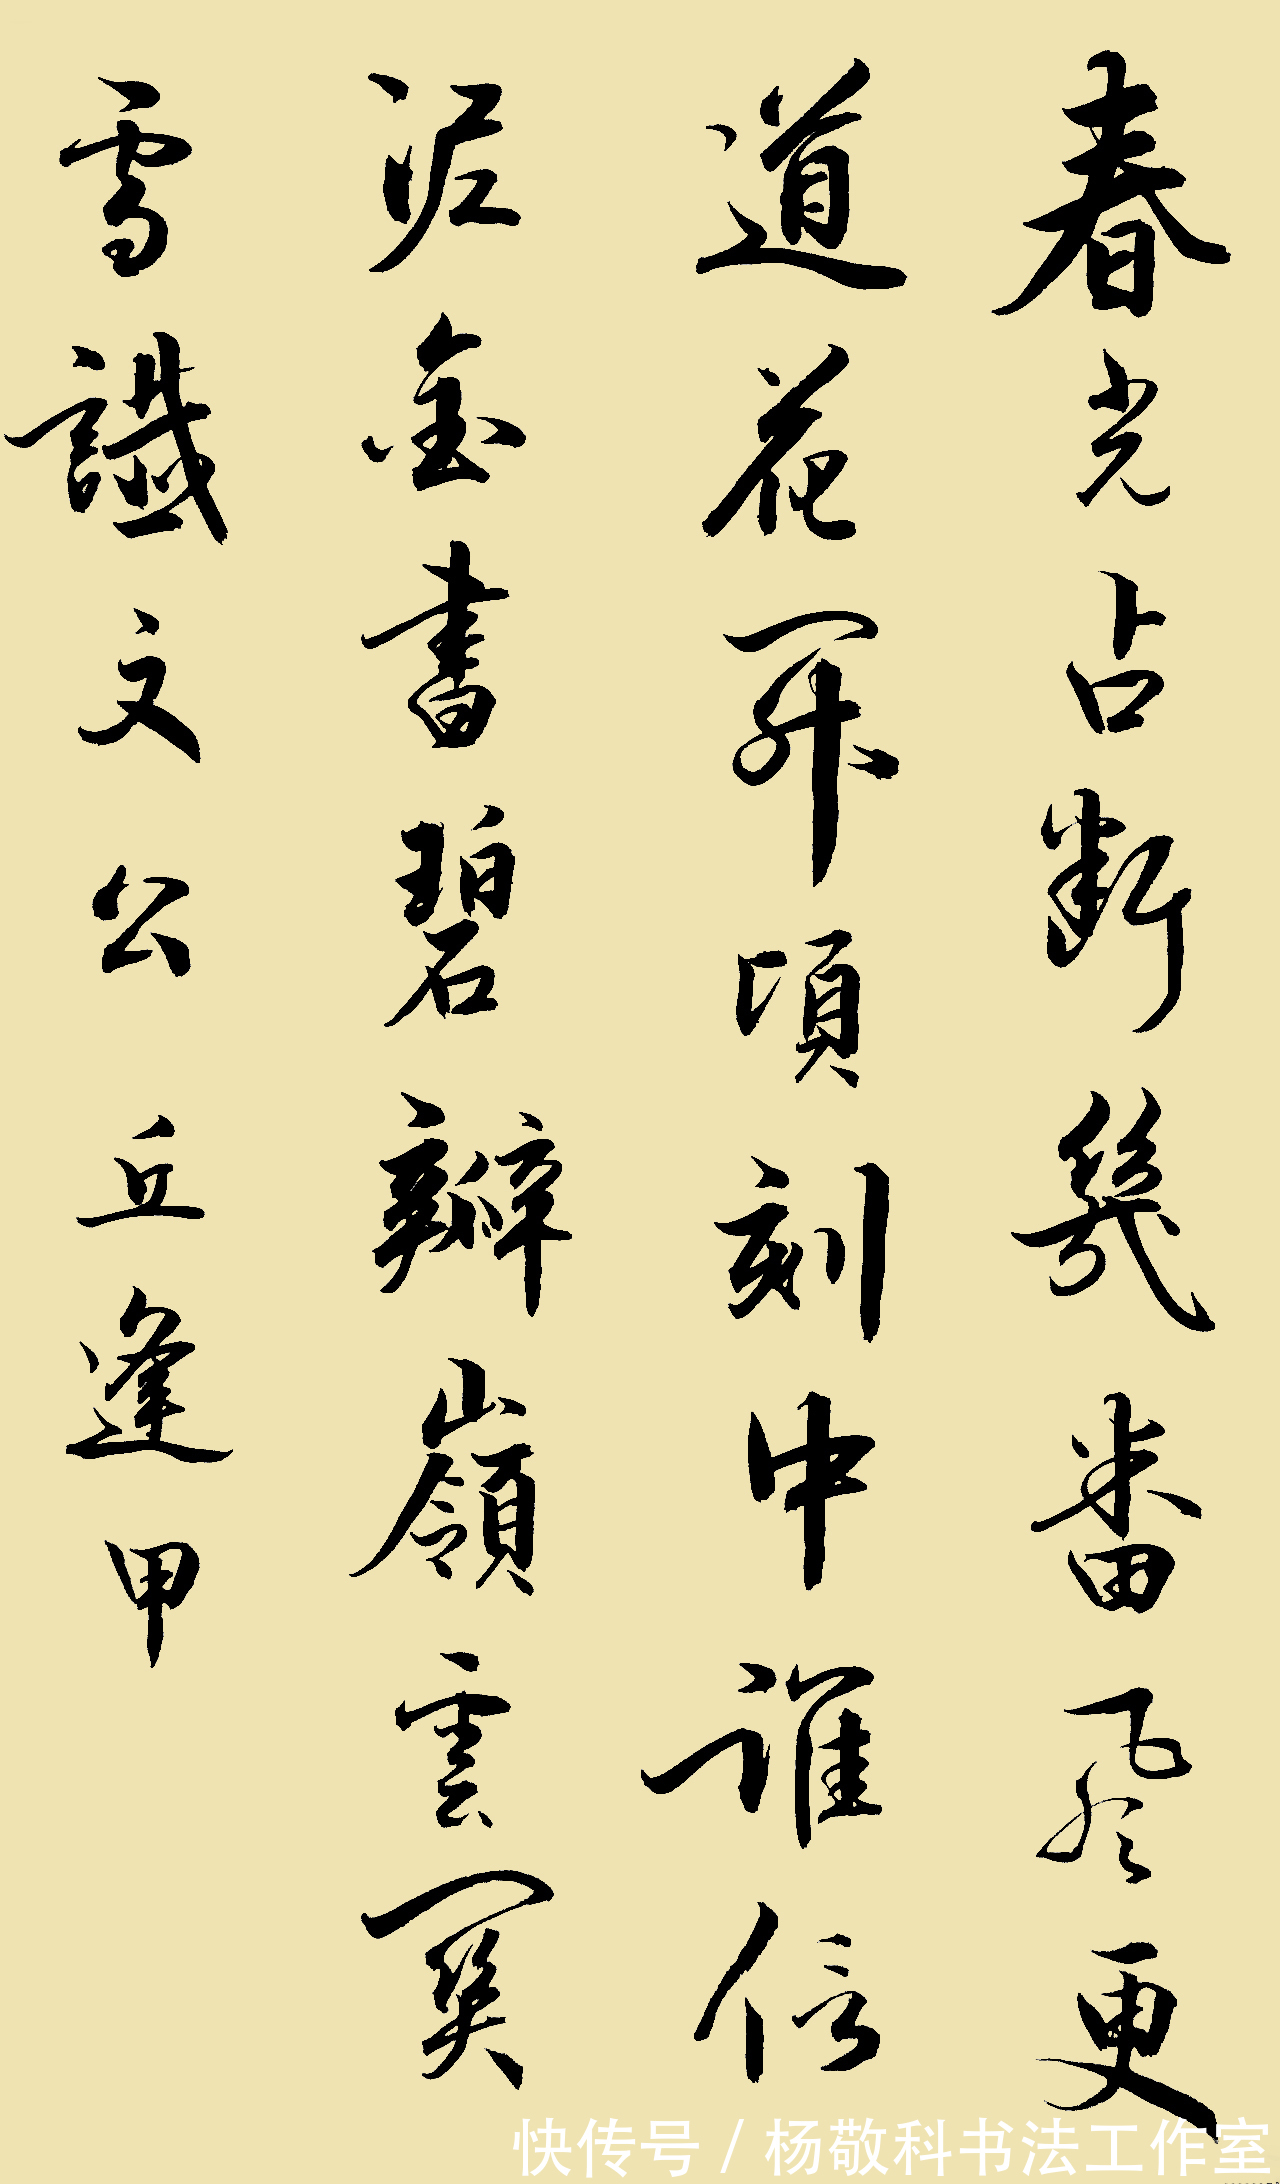 春光占斷幾番風更
道花開頃刻中誰信
泥金書碧瓣嶺雲關
雪讖文公 丘逢甲
快传号 / 杨敬科书法工作室